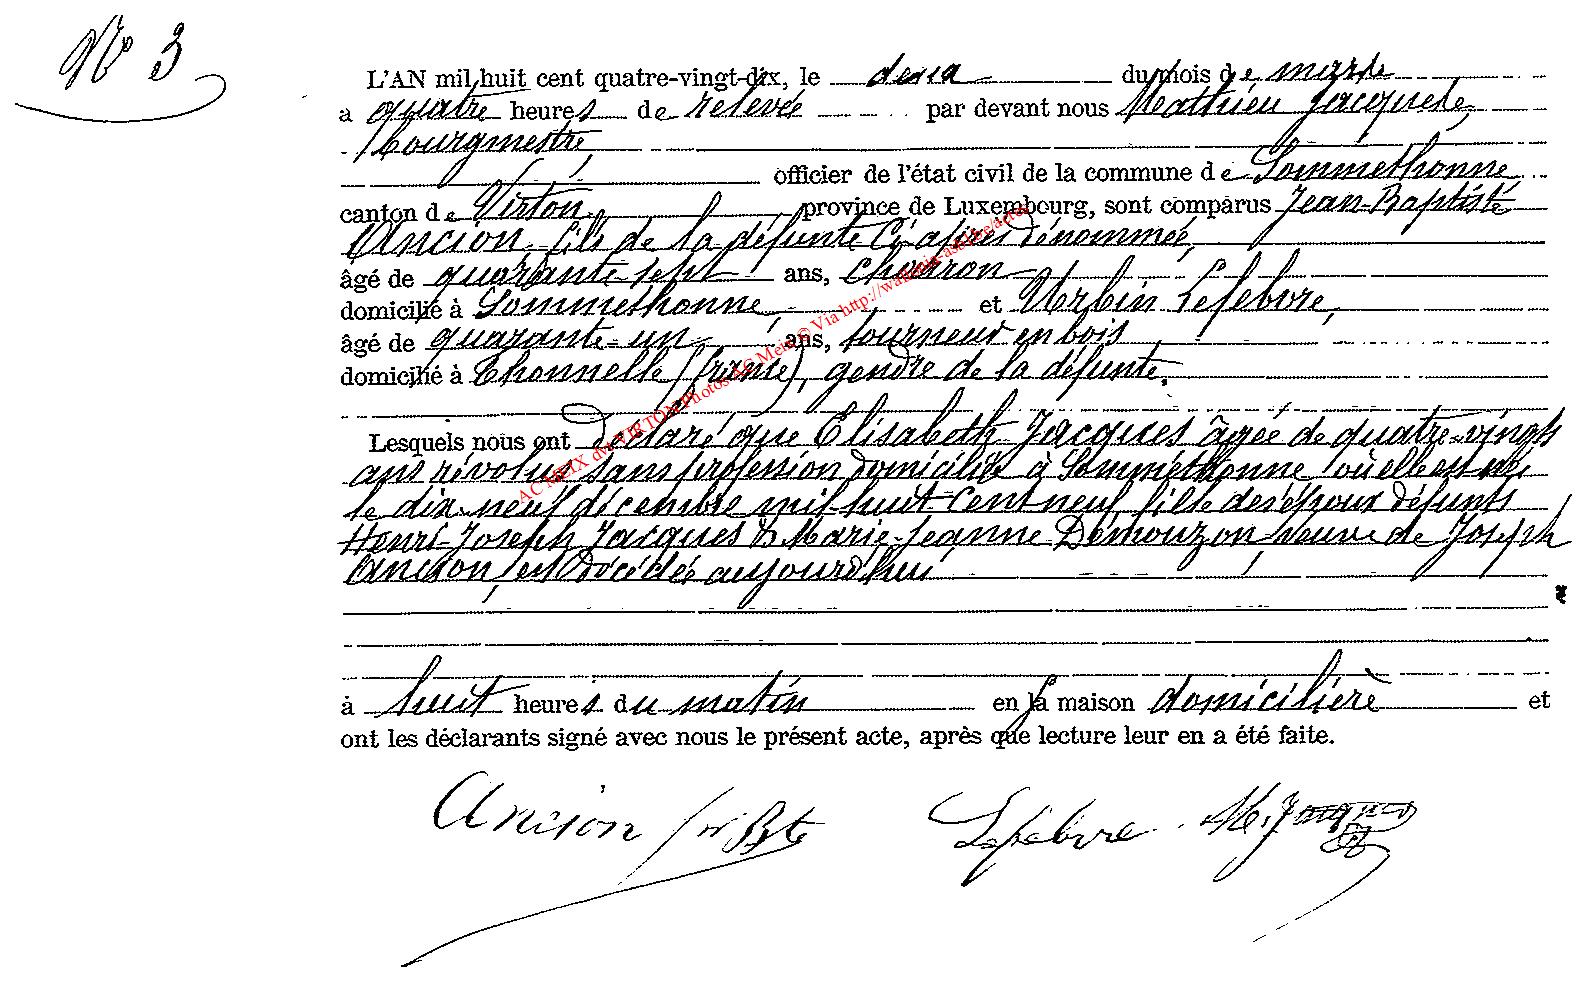 N° 3
L'AN mil huit cent quatre-vingt-dix, le deux du mois de mars
a quatre heures de relevée par devant nous Mathieu Jacques,
bourgmestre,
officier de l'état civil de la commune de Sommethonne
canton de Virton, province de Luxembourg, sont comparus Jean-Baptiste
Ancion, fils de la défunte ci-après dénommée,
âgé de quarante-sept ans, charron
domicilié à Sommethonne, et Urbin Lefebvre,
âgé de quarante-un ans, tourneur en bois
domicilié à Thonnelle (France), gendre de la défunte,
Lesquels nous ont déclaré que Elisabeth Jacques âgée de quatre-vingts
ans révolus sans profession domiciliée à Sommethonne où elle est née
le dix-neuf décembre mil huit cent neuf, fille des époux défunts
Henri-Joseph Jacques & Marie-Jeanne Démouzon, veuve de Joseph
Ancion, est décédée aujourd'hui
à huit heures du matin en sa maison domicilière et
ont les déclarants signé avec nous le présent acte, après que lecture leur en a été faite.
Ancion Jn Bte Lefebvre M. Jacques
AC MEIX dvt VIRTON Photos AC Meix © Via http://wallonia-asbl.be/actes